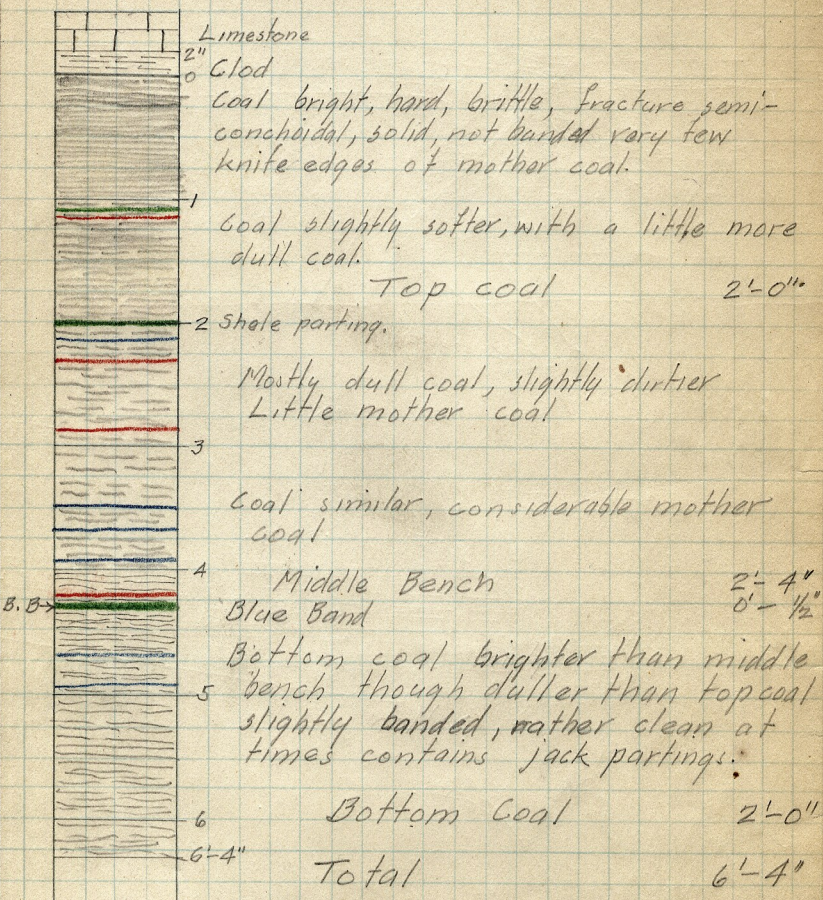 Limestone
2"
0 Clod
Coal bright, hard, brittle, fracture semi-
conchoidal, solid, not banded very few
knife edges of mother coal.
1
Coal slightly softer, with a little more
dull coal.
Top coal 2'-0"
2 Shale parting.
Mostly dull coal, slightly dirtier
Little mother coal
3
Coal similar, considerable mother
coal
4
Middle Bench 2'-4"
B.B→ Blue Band 0'-½"
Bottom coal brighter than middle
bench though duller than top coal
5
slightly banded, rather clean at
times contains jack partings.
6 Bottom Coal 2'-0"
6'-4"
Total 6'-4"